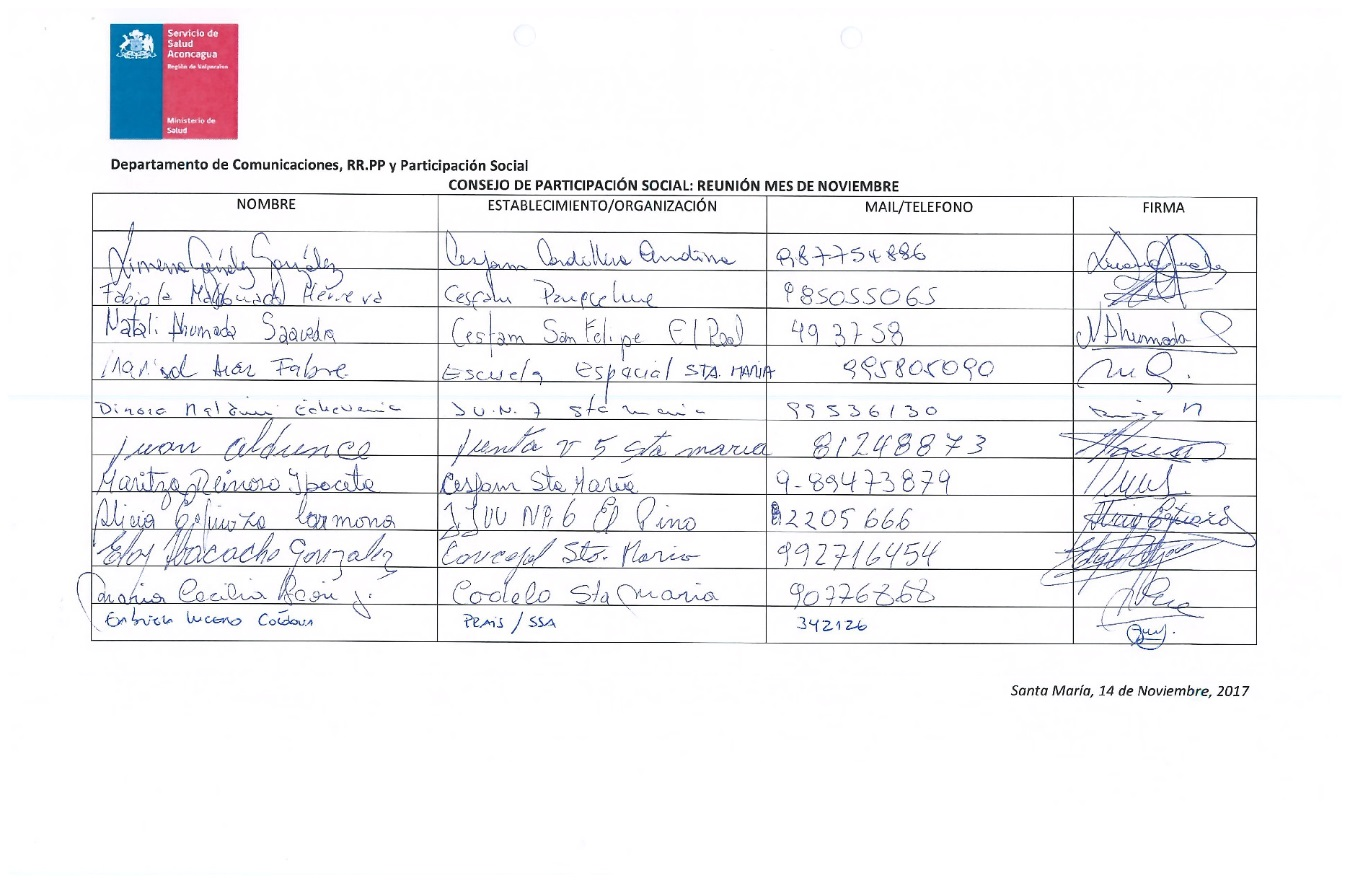 Servicio de
Salud
Aconcagua
Región de Valparaíso
Ministerio de
Salud
Departamento de Comunicaciones, RR.PP y Participación Social
CONSEJO DE PARTICIPACIÓN SOCIAL: REUNIÓN MES DE NOVIEMBRE
NOMBRE ESTABLECIMIENTO/ORGANIZACIÓN MAIL/TELEFONO FIRMA
Ximena González Cesfam Cordillera Andina 987754886
Fabiola Maldonado Herrera Cesfam 985055065
Natali Ahumada Saavedra Cesfam San Felipe El Real 493758 N Ahumada S
Marisol Aras Fabre Escuela Espacial STA. MARIA 995805090 M.A.
Echeverria J.V.N. 7 sta maria 99536130
Juan aldunce Junta V 5 sta maria 81248873
Maritza Reinoso Ibaceta Cesfam Sta María 9-89473879
Alicia Carmona JJVV Nº 6 El Pino 82205666
Eloy Ibacache Gonzalez Concejal Sta. Maria 992716454
Maria Cecilia J. Codelo Sta Maria 90776868
Lucero Córdova /SSA 342126
Santa María, 14 de Noviembre, 2017